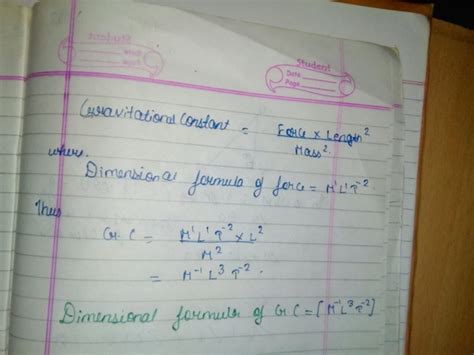 Student
Date
Page
Gravitational Constant = Force × Length²
Mass²
where,
Dimensional formula of force = M¹L¹T⁻²
Thus
G.C = M¹L¹T⁻² × L²
M²
= M⁻¹L³T⁻².
Dimensional formula of G.C = [M⁻¹L³T⁻²]